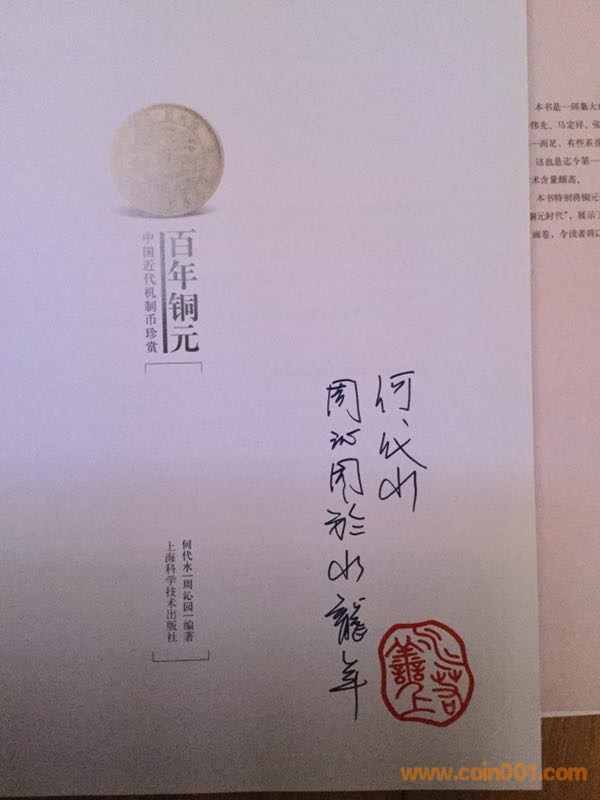 百年铜元
中国近代机制币珍赏
何代水
周沁园於水龍年
上善若
何代水|周沁园|编著
上海科学技术出版社
本书是一部集大
伟先、马定祥、张
一而足，有些系首
这也是迄今第一
术含量颇高。
本书特别将铜元
铜元时代”，展示了
画卷，令读者得以
www.coin001.com